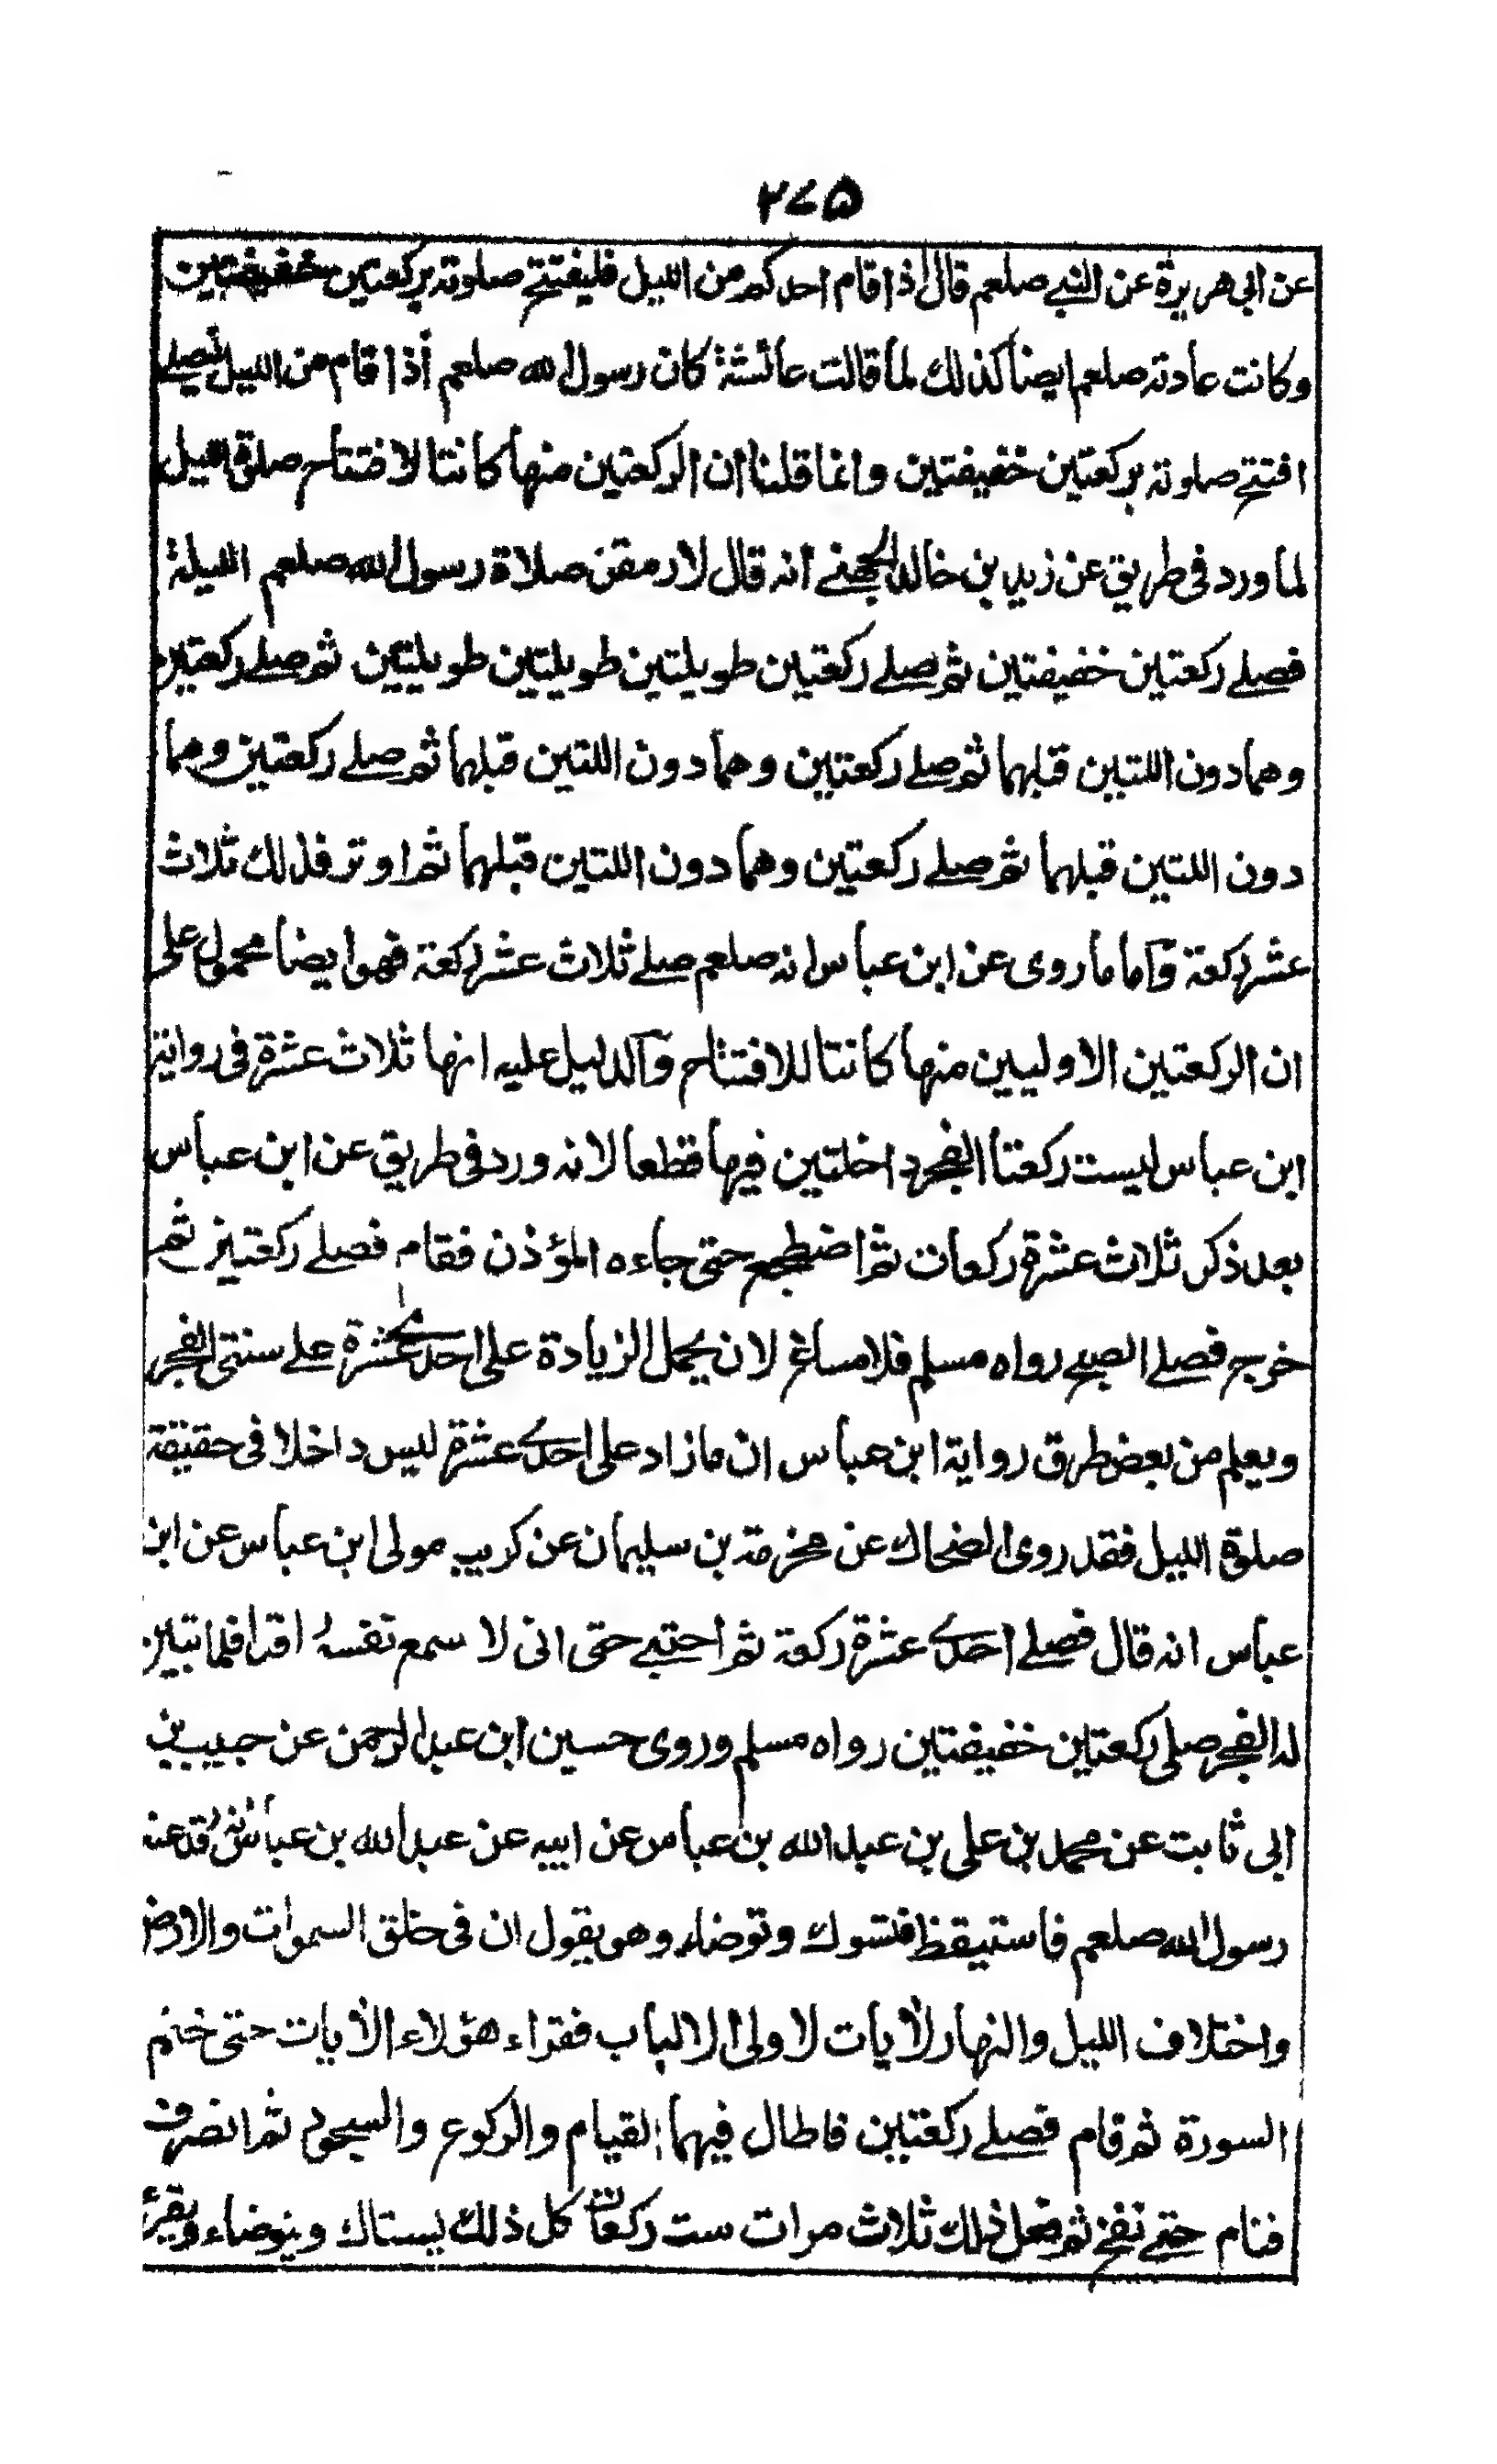 ۲۷۵
عن ابی هريرة عن النبے صلعم قال اذا قام احدكم من الليل فليفتتح صلوته بركعتين خفيفتين
وكانت عادته صلعم ايضا كذلك لما قالت عائشة كان رسول الله صلعم أذا قام من الليل ليصلے
افتتح صلوته بركعتين خفيفتين وانما قلنا ان الركعتين منها كانتا لافتتاح صلوة الليل
لما ورد فی طريق عن زيد بن خالد الجهنے انه قال لارمقن صلاة رسول الله صلعم الليلة
فصلے ركعتين خفيفتين ثم صلے ركعتين طويلتين طويلتين طويليتين ثم صلے ركعتين
وهما دون اللتين قبلهما ثم صلے ركعتين وهما دون اللتين قبلهما ثم صلے ركعتين وهما
دون اللتين قبلهما ثم صلے ركعتين وهما دون اللتين قبلهما ثم اوتر فذلك ثلاث
عشر ركعة وآما ما روی عن ابن عباس انه صلعم صلے ثلاث عشر ركعة فهو ايضا محمول علی
ان الركعتين الاوليين منها كانتا للافتتاح وآلدليل عليه انها ثلاث عشرة فی رواية
ابن عباس ليست ركعتا الفجر داخلتين فيها قطعا لانه ورد فی طريق عن ابن عباس
بعد ذكر ثلاث عشرة ركعات ثم اضطجع حتی جاءه المؤذن فقام فصلے ركعتين ثم
خرج فصلے الصبح رواه مسلم فلا مساغ لان يحمل الزيادة علی احدے عشرة علے سنتی الفجر
ويعلم من بعض طرق رواية ابن عباس ان ما زاد علی احدے عشرة ليس داخلا فی حقيقة
صلوة الليل فقد روی الضحاك عن مخرمة بن سليمان عن كريب مولی ابن عباس عن ابن
عباس انه قال فصلے احدے عشرة ركعة ثم احتبے حتی انی لا سمع نفسه اقدا فلما تبين
له الفجر صلی ركعتين خفيفتين رواه مسلم وروی حسين ابن عبد الرحمن عن حبيب بن
ابی ثابت عن محمد بن علی بن عبد الله بن عباس عن ابيه عن عبد الله بن عباس انه رقد عند
رسول الله صلعم فاستيقظ فتسوك وتوضاء وهو يقول ان فی خلق السموات والارض
واختلاف الليل والنهار لآيات لاولی الالباب فقراء هؤلاء الآيات حتی ختم
السورة ثم قام فصلے ركعتين فاطال فيهما القيام والركوع والسجود ثم انصرف
فنام حتے نفخ ثم فعل ذلك ثلاث مرات ست ركعات كل ذلك يستاك ويتوضاء ويقرئ